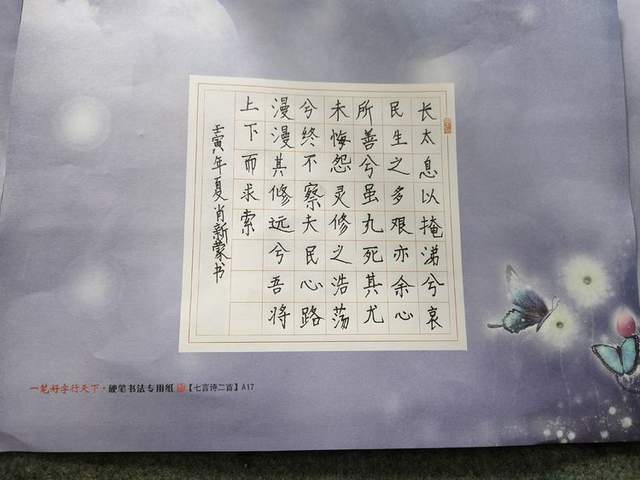 长太息以掩涕兮哀
民生之多艰亦余心
所善兮虽九死其尤
未悔怨灵修之浩荡
兮终不察夫民心路
漫漫其修远兮吾将
上下而求索
壬寅年夏肖新蒙书
一笔好字行天下·硬笔书法专用纸【七言诗二首】A17